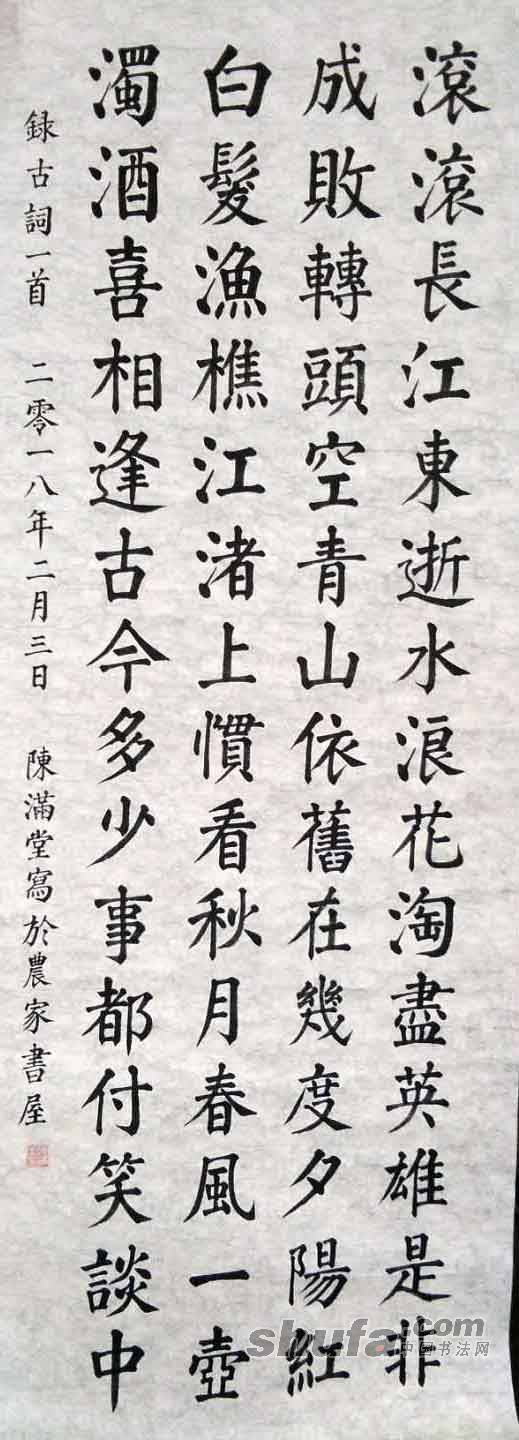 滾滾長江東逝水浪花淘盡英雄是非
成敗轉頭空青山依舊在幾度夕陽紅
白髮漁樵江渚上慣看秋月春風一壺
濁酒喜相逢古今多少事都付笑談中
録古詞一首 二零一八年二月三日 陳滿堂寫於農家書屋
shufa.com
中国书法网